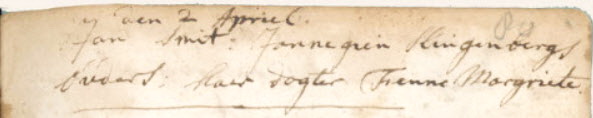 den 2 Apriel.
Jan Smit: Jannegien Klingenbergs
Ouders: Haer dogter Fienne Margriete